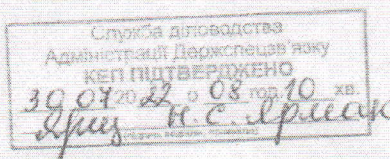 Служба діловодства
Адміністрації Держспецзв'язку
КЕП ПІДТВЕРДЖЕНО
30 07 2022 о 08 год 10 хв.
Н. С. Ярман